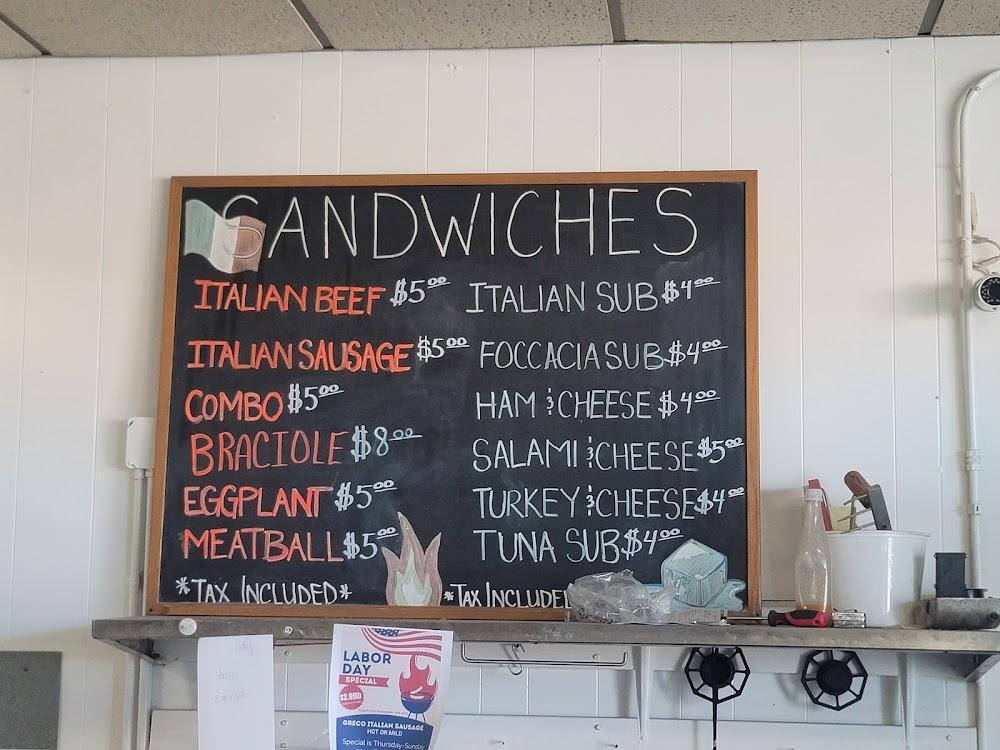 SANDWICHES
ITALIAN BEEF $5.00
ITALIAN SAUSAGE $5.00
COMBO $5.00
BRACIOLE $8.00
EGGPLANT $5.00
MEATBALL $5.00
*TAX INCLUDED*
ITALIAN SUB $4.00
FOCCACIA SUB $4.00
HAM & CHEESE $4.00
SALAMI & CHEESE $5.00
TURKEY & CHEESE $4.00
TUNA SUB $4.00
*TAX INCLUDED
LABOR
DAY
SPECIAL
$2.99lb
GRECO ITALIAN SAUSAGE
HOT OR MILD
Special is Thursday-Sunday